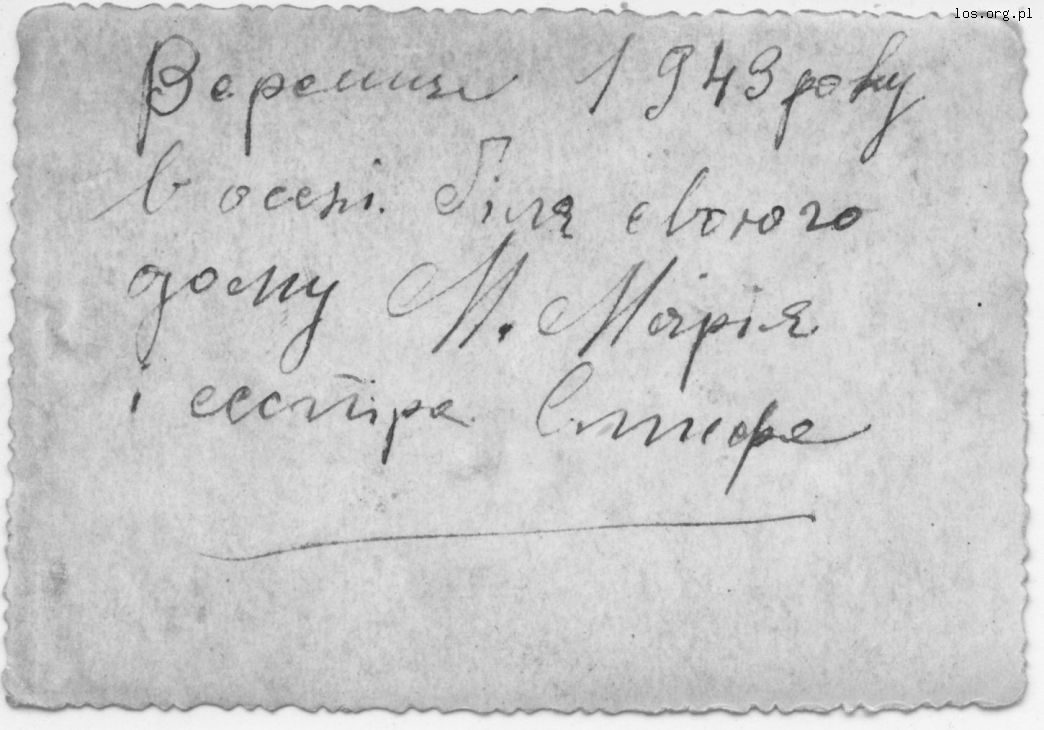 los.org.pl
1943 року
в осені біля своюго
дому М. Марія
і сестра Стефа